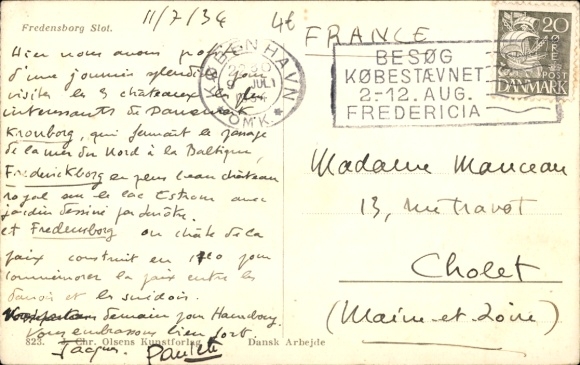 Fredensborg Slot.
11/7/34
4e
FRANCE
KØBENHAVN
OMK.
BESØG
KØBESTÆVNET
2.-12. AUG.
FREDERICIA
20
ØRE
POST
DANMARK
Hier nous avons profité
d'une journée splendide pour
visiter les 3 châteaux les plus
intéressants de Danemark
Kronborg, qui fermait le passage
de la mer du Nord à la Baltique,
Frederickborg un peu beau château
royal sur le lac Estrom avec
jardin dessiné
et Fredensborg ou château de la
paix construit en 1720 pour
commémorer la paix entre les
danois et les suédois.
demain pour Hambourg
Vous embrassons bien fort.
Jacques. Paulette
823. Chr. Olsens Kunstforlag Dansk Arbejde
Madame Manceau
13, rue Travot
Cholet
(Maine-et-Loire)